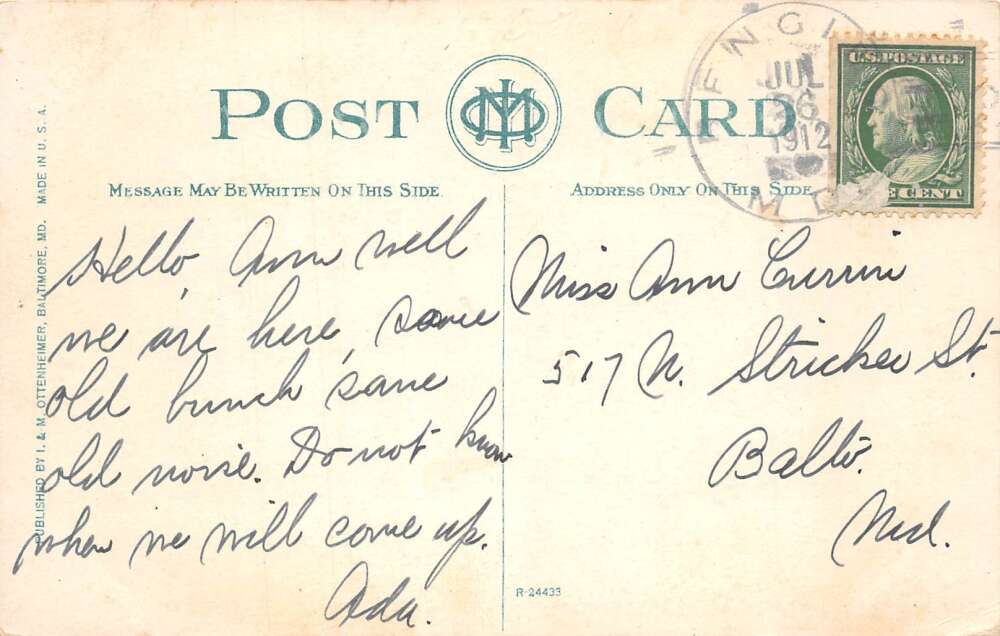 POST CARD
MESSAGE MAY BE WRITTEN ON THIS SIDE.
ADDRESS ONLY ON THIS SIDE
JUL
26
1912
MD
U.S. POSTAGE
CENT
PUBLISHED BY I. & M. OTTENHEIMER, BALTIMORE, MD. MADE IN U. S. A.
Hello, Ann well
we are here, same
old bunch same
old noise. Do not know
when we will come up.
Ada.
Miss Ann Currin
517 N. Stricker St.
Balto.
Md.
R-24433